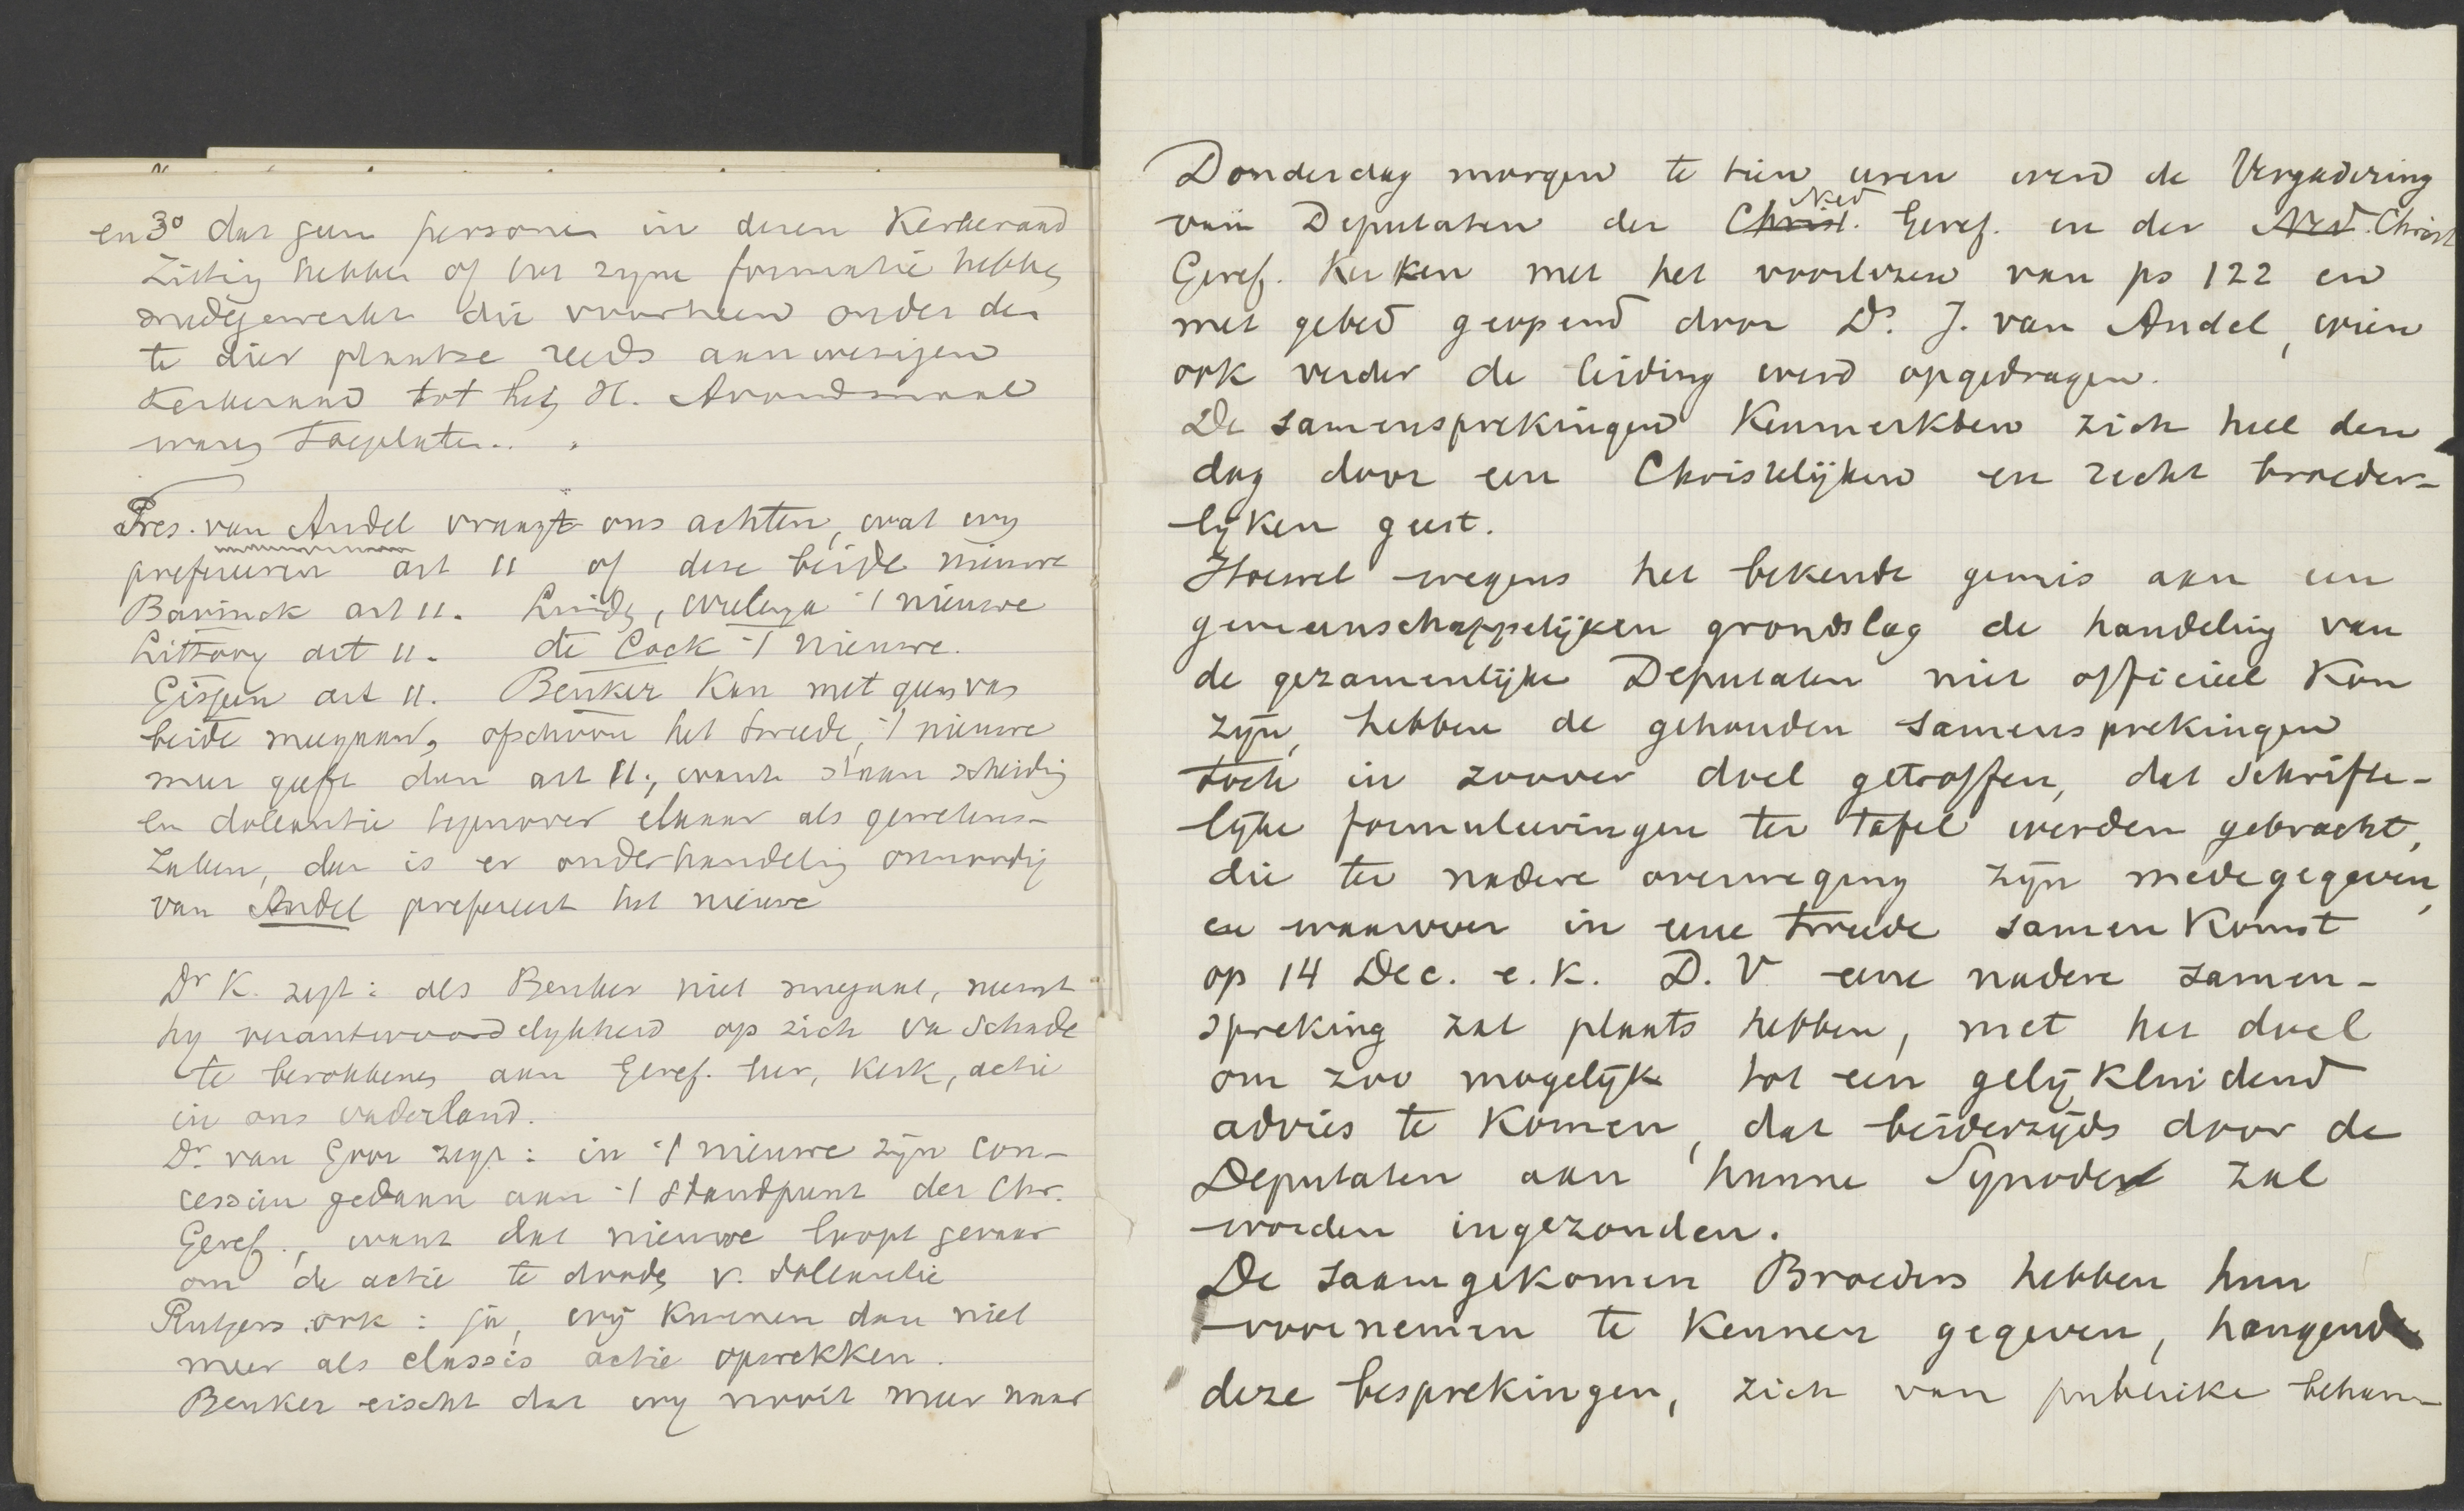 en 3o dat geen personen in dezen Kerkeraad
zitting hebben of tot zijne formatie hebben
medegewerkt die voorheen onder den
te dier plaatse reeds aanwezigen
Kerkeraad tot het H. Avondmaal
waren toegelaten.
Pres. van Andel vraagt ons achten, wat wy
prefereeren art 11 of deze beide nieuwe
Bavinck art 11. Lindeb, Wielenga 't nieuwe
Littooy art 11. de Cock 't nieuwe.
Gispen art 11. Beuker Kan met geen van
beide meegaan, ofschoon het tweede, 't nieuwe
meer geeft dan art 11; want staan scheiding
en doleantie tegenover elkaar als gewetens-
zaken, dan is er onderhandeling onnoodig
van Andel prefereert het nieuwe
Dr K. zegt: als Beuker niet meegaat, neemt
hy verantwoordelykheid op zich va schade
te berokkenen aan Geref. leer, Kerk, actie
in ons vaderland.
Dr. van Goor zegt: in 't nieuwe zijn con-
cessien gedaan aan 't standpunt der Chr.
Geref., want dat nieuwe loopt gevaar
om de actie te dooden v. doleantie
Rutgers ook: ja, wij kunnen dan niet
meer als classis actie opwekken.
Beuker eischt dat wy nooit meer naar
Donderdag morgen te tien uren werd de Vergadering
Ned
van Deputaten der Christ. Geref. en der Ned. Christ
Geref. Kerken met het voorlezen van ps 122 en
met gebed geopend door Ds. J. van Andel, wien
ook verder de leiding werd opgedragen.
De samensprekingen Kenmerkten zich heel den
dag door een Christelijken en recht broeder-
lyken geest.
Hoewel wegens het bekende gemis aan een
gemeenschappelijken grondslag de handeling van
de gezamenlijke Deputaten niet officieel Kon
zijn, hebben de gehouden samensprekingen
toch in zoover doel getroffen, dat schrifte-
lijke formuleeringen ter tafel werden gebracht,
die ter nadere overweging zijn medegegeven,
en waarover in eene tweede samenkomst
op 14 Dec. e.k. D.V eene nadere samen-
spreking zal plaats hebben, met het doel
om zoo mogelijk tot een gelijkluidend
advies te Komen, dat beiderzijds door de
Deputaten aan hunne Synoden zal
worden ingezonden.
De saamgekomen Broeders hebben hun
voornemen te Kennen gegeven, hangende
deze besprekingen, zich van publieke behan-